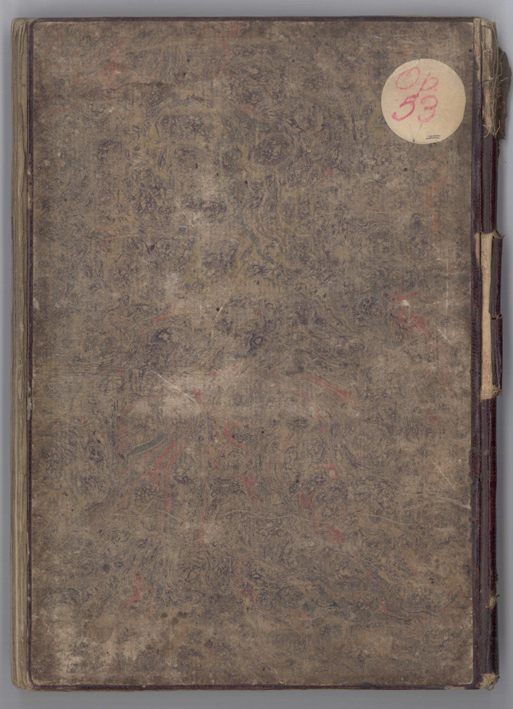 Op.
53